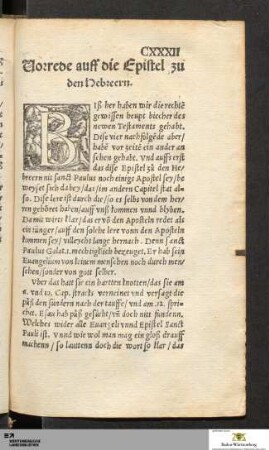 CXXXII
Vorrede auff die Epistel zu
den Hebreern.
BIß her haben wir die rechtē
gewissen heupt biecher des
newen Testaments gehabt.
Dise vier nachfolgēde aber/
habē vor zeitē ein ander an
sehen gehabt. Vnd auffs erst
das dise Epistel zů den He-
breern nit sanct Paulus noch einigs Apostel sey/be
weyset sich da bey/das jm andern Capitel stat al-
so. Dise lere ist durch die/so es selbs von dem her-
ren gehöret haben/auff vnß kommen vnnd blyben.
Damit wirt klar/das er vō den Aposteln redet als
ein iünger/auff den solche lere vonn den Aposteln
kommen sey/villeycht lange hernach. Denn sanct
Paulus Galat.1. mechtiglich bezeuget. Er hab sein
Euangelium von keinem menschen noch durch men-
schen/sonder von gott selber.
Vber das hatt sie ein hartten knotten/das sie am
6. vnd 10. Cap. stracks verneinet vnd versagt die
půß den sündern nach der tauffe/vnd am .12. spri-
chet. Esau hab půß gesücht/vñ doch nitt funden.
Welches wider alle Euangeli vnnd Epistel Sanct
Pauli ist. Vnnd wie wol man mag ein gloß drauff
machenn/so lauttenn doch die wort so klar/das
Baden-Württemberg